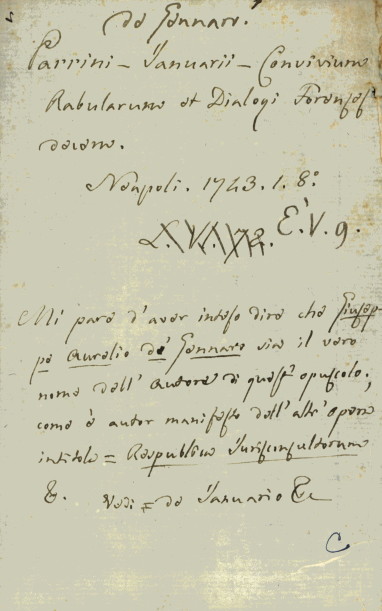 de Gennaro.
Parrini = Januarii = Convivium
Rabularum et Dialogi Forenses
decem.
Neapoli. 1743. 1. 8.º
E'.V. 9.
Mi pare d'aver inteso dire che Giusep-
pe Aurelio de' Gennaro sia il vero
nome dell'Autore di quest'opuscolo,
come è autor manifesto dell'altr'opera
intitola = Respublica Jurisconsultorum
&. Vedi = de Januario &c
C